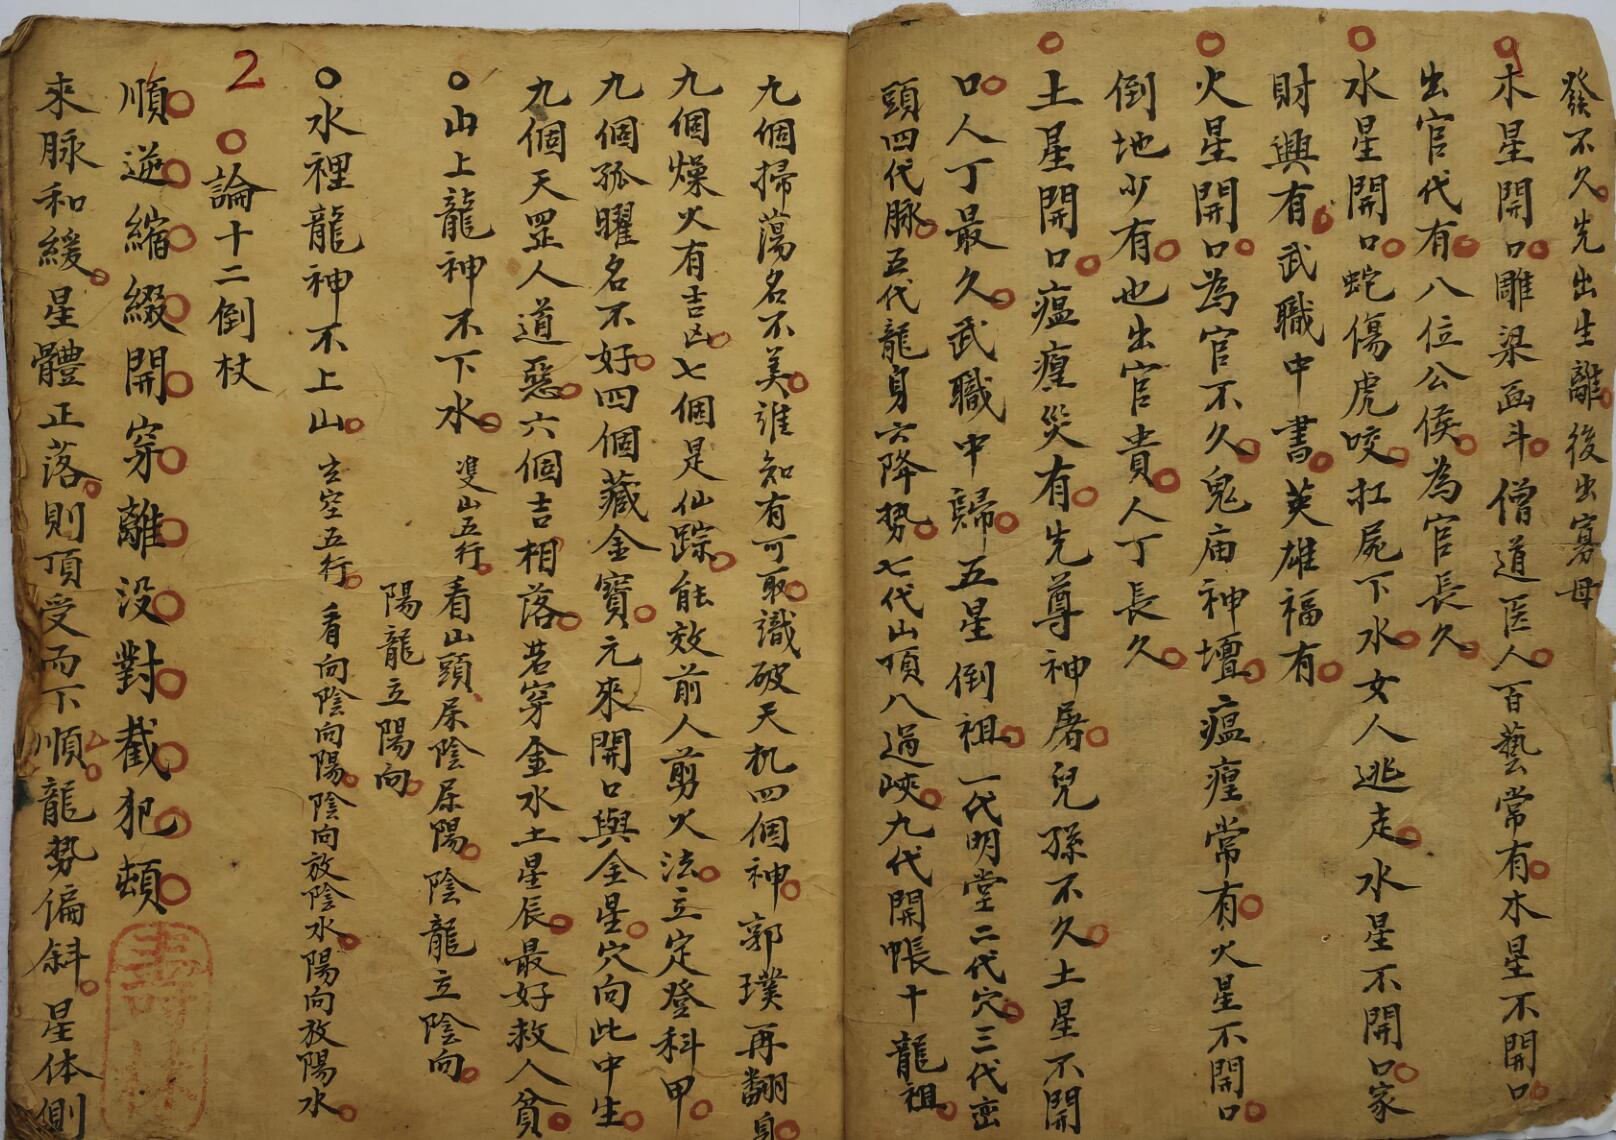 發不久先出生離後出寡母
木星開口雕梁画斗僧道医人百藝常有木星不開口
出官代有八位公侯為官長久
水星開口蛇傷虎咬扛屍下水女人逃走水星不開口家
財興有武職中書英雄福有
火星開口為官不久鬼庙神壇瘟瘟常有火星不開口
倒地少有也出官貴人丁長久
土星開口瘟瘟災有先尊神屠兒孫不久土星不開
口人丁最久武職中歸五星倒祖一代明堂二代穴三代峦
頭四代脉五代龍身六降势七代山頂八過峽九代開帳十龍祖
九個掃蕩名不美誰知有可取識破天机四個神郭璞再翻身
九個燥火有吉凶七個是仙踪能效前人剪火法立定登科甲
九個孤曜名不好四個藏金寶元來開口與金星穴向此中生
九個天罡人道惡六個吉相落若穿金水土星辰最好救人貧
○山上龍神不下水 雙山五行 看山頭屎陰屎陽陰龍立陰向
陽龍立陽向
○水裡龍神不上山 玄空五行 看向陰向陽陰向放陰水陽向放陽水
2 ○論十二倒杖
順逆縮綴開穿離没對截犯頓
來脉和緩星體正落則頂受而下順龍势偏斜星体側
壽林